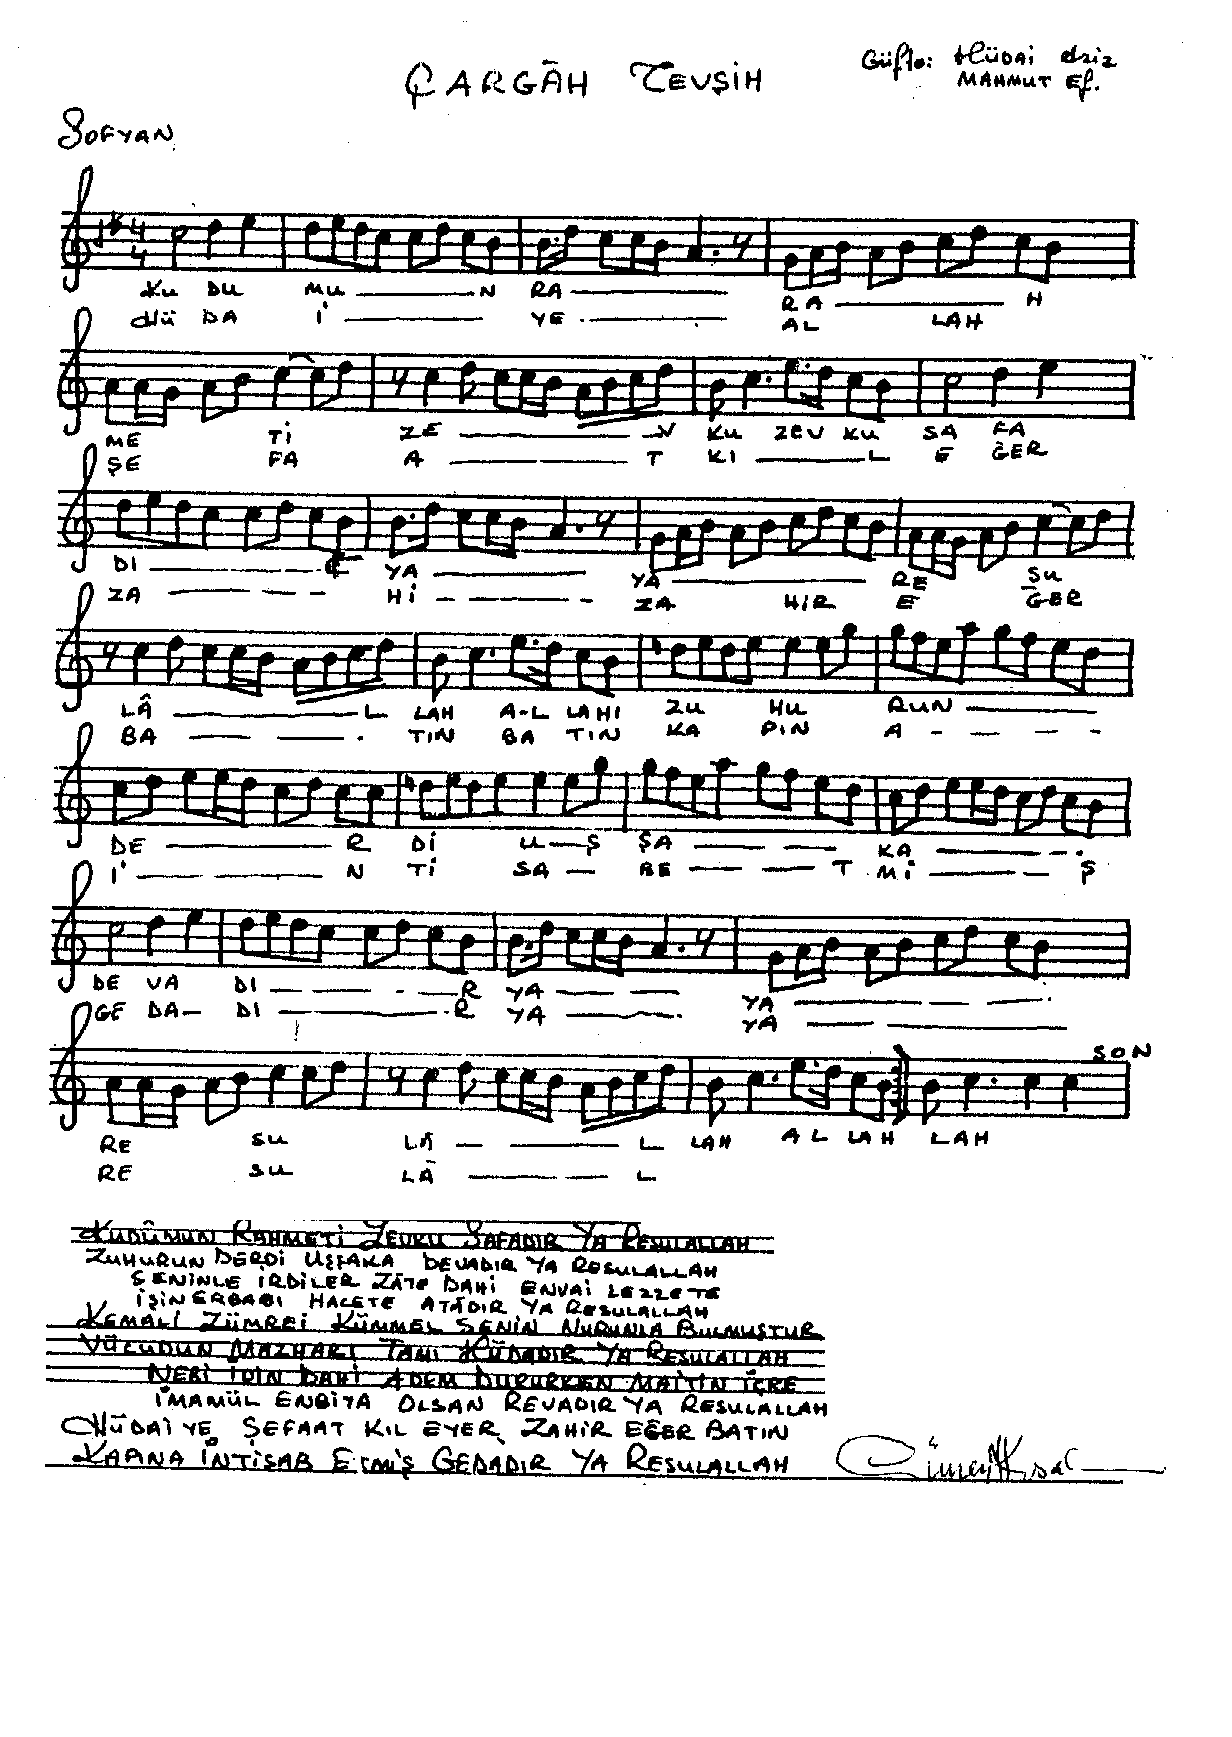 ÇARGÂH TEVŞİH
Güfte: HÜDAİ Aziz
MAHMUT Ef.
SOFYAN
KU DU MU N RA RA H
HÜ DA İ YE AL LAH
ME Tİ ZE V KU ZEV KU SA FA
ŞE FA A T KI L E ĞER
DI YA YA RE SU
ZA Hİ ZA HİR E ĞER
LÂ L LAH A-L LAHI ZU HU RUN
BA TIN BA TIN KA PIN A
DE R Dİ U Ş ŞA KA
İ N Tİ SA BE T Mİ Ş
DE VA DI R YA YA
GE DA DI R YA YA
SON
RE SU LÂ L LAH AL LAH LAH
RE SU LÂ L
KUDÛMUN RAHMETİ ZEVKU SAFADIR YA RESULALLAH
ZUHURUN DERDİ UŞŞAKA DEVADIR YA RESULALLAH
SENİNLE İRDİLER ZÂTE DAHİ ENVAİ LEZZETE
İŞİN ERBABI HALETE ATÂDIR YA RESULALLAH
KEMALİ ZÜMREİ KÜMMEL SENİN NURUNLA BULMUŞTUR
VÜCUDUN MAZHARI TAMI HÜDADIR YA RESULALLAH
NEBİ İDİN DAHİ ADEM DURURKEN MAİTİN İÇRE
İMAMÜL ENBİYA OLSAN REVADIR YA RESULALLAH
HÜDAİYE ŞEFAAT KIL EYER ZAHİR EĞER BATIN
KAPINA İNTİSAB ETMİŞ GEDADIR YA RESULALLAH